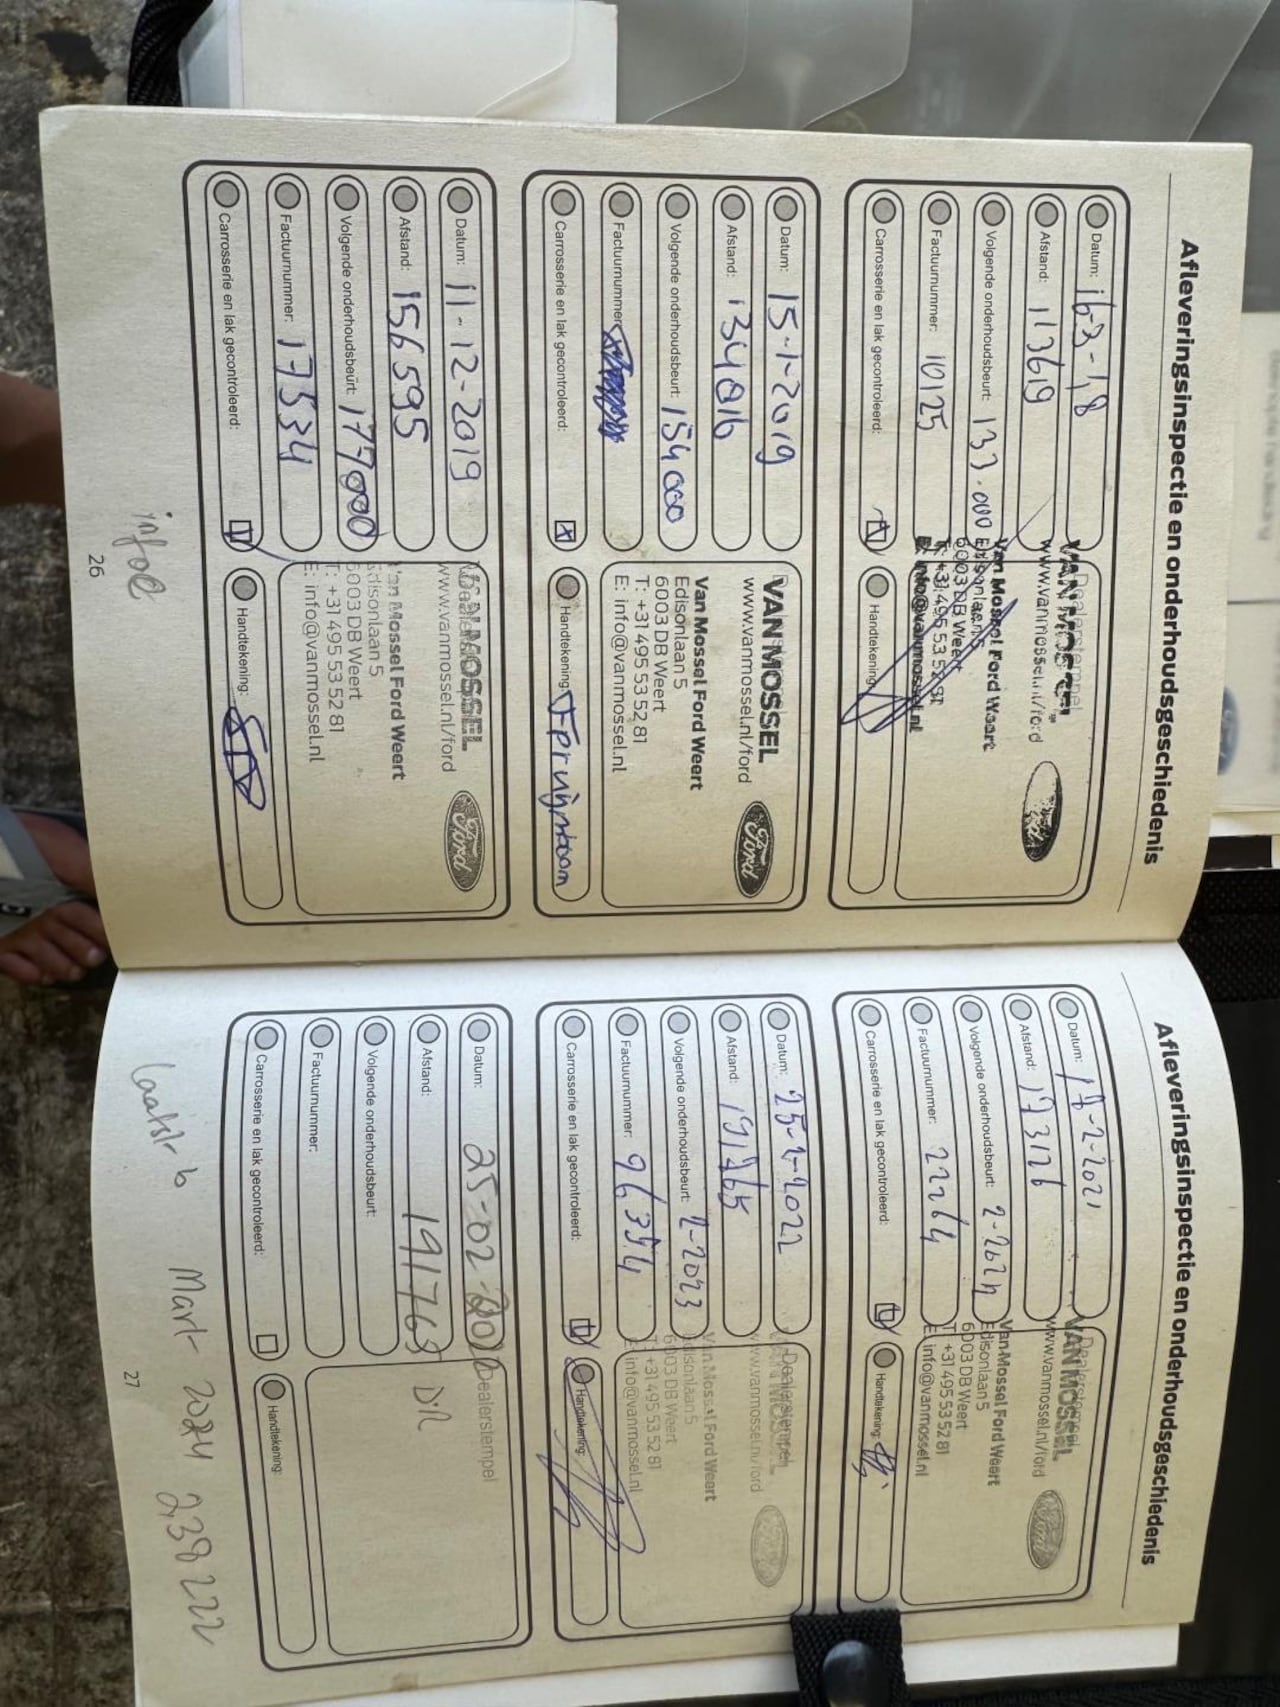 Afleveringsinspectie en onderhoudsgeschiedenis
Datum: 16-3-18
Afstand: 113619
Volgende onderhoudsbeurt: 133.000
Factuurnummer: 10125
Carrosserie en lak gecontroleerd:
Dealerstempel
VAN MOSSEL
www.vanmossel.nl/ford
Ford
Van Mossel Ford Weert
Edisonlaan 5
6003 DB Weert
T: +31 495 53 52 81
E: info@vanmossel.nl
Handtekening:
Datum: 15-1-2019
Afstand: 134816
Volgende onderhoudsbeurt: 154000
Factuurnummer:
Carrosserie en lak gecontroleerd:
VAN MOSSEL
www.vanmossel.nl/ford
Ford
Van Mossel Ford Weert
Edisonlaan 5
6003 DB Weert
T: +31 495 53 52 81
E: info@vanmossel.nl
Handtekening:
Datum: 11-12-2019
Afstand: 156595
Volgende onderhoudsbeurt: 177000
Factuurnummer: 17534
Carrosserie en lak gecontroleerd:
Dealerstempel
VAN MOSSEL
www.vanmossel.nl/ford
Ford
Van Mossel Ford Weert
Edisonlaan 5
6003 DB Weert
T: +31 495 53 52 81
E: info@vanmossel.nl
Handtekening:
26
Afleveringsinspectie en onderhoudsgeschiedenis
Datum: 17-2-2021
Afstand: 173126
Volgende onderhoudsbeurt:
Factuurnummer: 22264
Carrosserie en lak gecontroleerd:
Dealerstempel
VAN MOSSEL
www.vanmossel.nl/ford
Ford
Van Mossel Ford Weert
Edisonlaan 5
6003 DB Weert
T: +31 495 53 52 81
E: info@vanmossel.nl
Handtekening:
Datum: 25-2-2022
Afstand: 191765
Volgende onderhoudsbeurt: 2-2023
Factuurnummer: 96354
Carrosserie en lak gecontroleerd:
Dealerstempel
VAN MOSSEL
www.vanmossel.nl/ford
Ford
Van Mossel Ford Weert
Edisonlaan 5
6003 DB Weert
T: +31 495 53 52 81
E: info@vanmossel.nl
Handtekening:
Datum: 25-02
Afstand: 191765
Volgende onderhoudsbeurt:
Factuurnummer:
Carrosserie en lak gecontroleerd:
Dealerstempel
Handtekening:
Mart 2024 238222
27